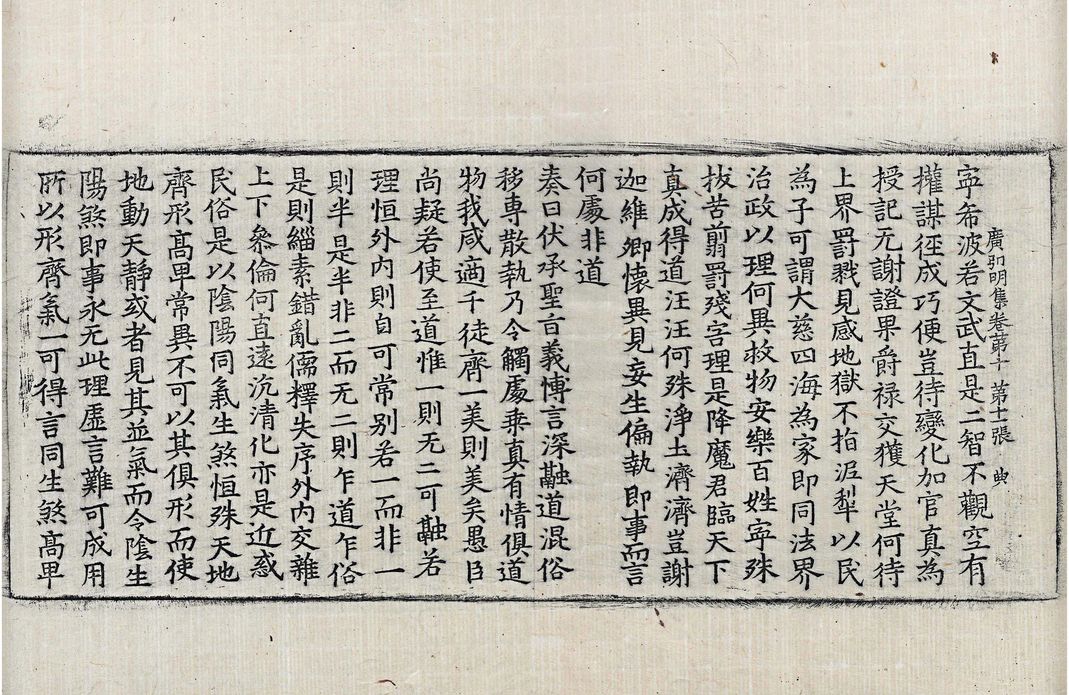 廣弘明集卷第十 第十一張 典
寍希波若文武直是二智不觀空有
權謀徑成巧便豈待變化加官真為
授記无謝證果爵禄交獲天堂何待
上界罸戮見感地獄不指泥犁以民
為子可謂大慈四海為家即同法界
治政以理何異救物安樂百姓寍殊
拔苦翦罸殘害理是降魔君臨天下
真成得道汪汪何殊淨土濟濟豈謝
迦維卿懷異見妄生偏執即事而言
何處非道
奏曰伏承聖旨義博言深融道混俗
移專散執乃令觸處乗真有情俱道
物我咸適千徒齊一美則美矣愚臣
尚疑若使至道惟一則无二可融若
理恒外内則自可常别若一而非一
則半是半非二而无二則乍道乍俗
是則緇素錯亂儒釋失序外内交雜
上下參倫何直遠沉清化亦是近惑
民俗是以陰陽同氣生煞恒殊天地
齊形髙卑常異不可以其俱形而使
地動天静或者見其並氣而令陰生
陽煞即事永无此理虛言難可成用
所以形齊氣一可得言同生煞髙卑